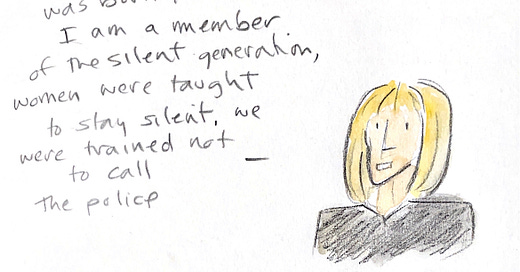 was
I am a member
of the silent generation,
women were taught
to stay silent, we
were trained not —
to call
the police